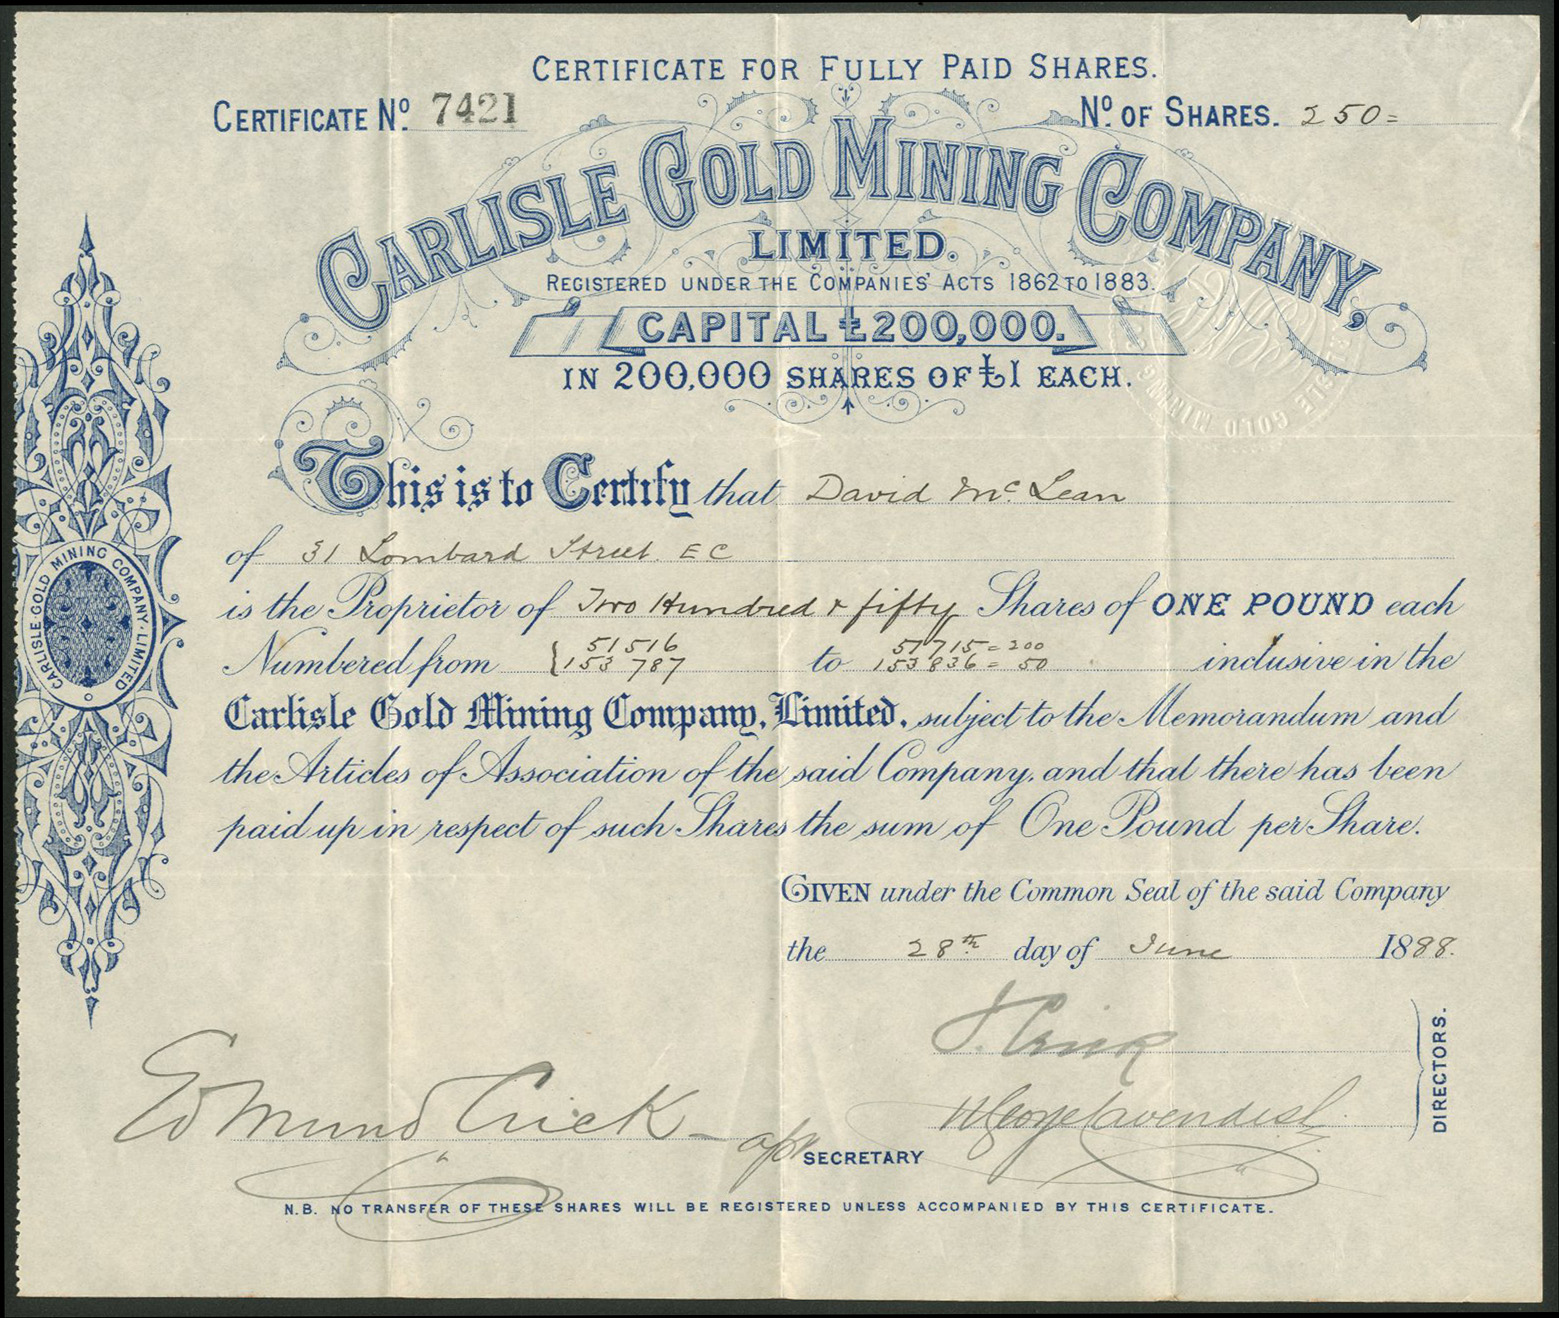 CERTIFICATE FOR FULLY PAID SHARES.
CERTIFICATE No. 7421
No. OF SHARES. 250=
CARLISLE GOLD MINING COMPANY,
LIMITED.
REGISTERED UNDER THE COMPANIES' ACTS 1862 TO 1883.
CAPITAL £200,000.
IN 200,000 SHARES OF £1 EACH.
This is to Certify that David McLean
of 31 Lombard Street. EC
is the Proprietor of Two Hundred & fifty Shares of ONE POUND each
51516 51715 = 200
Numbered from { 153 787 to 153836 = 50 inclusive in the
Carlisle Gold Mining Company, Limited, subject to the Memorandum and
the Articles of Association of the said Company, and that there has been
paid up in respect of such Shares the sum of One Pound per Share.
GIVEN under the Common Seal of the said Company
the 28th day of June 1888.
J. Crick
Edmund Crick
W George Cavendish
DIRECTORS.
SECRETARY
N.B. NO TRANSFER OF THESE SHARES WILL BE REGISTERED UNLESS ACCOMPANIED BY THIS CERTIFICATE.
CARLISLE GOLD MINING COMPANY. LIMITED
GOLD MINING